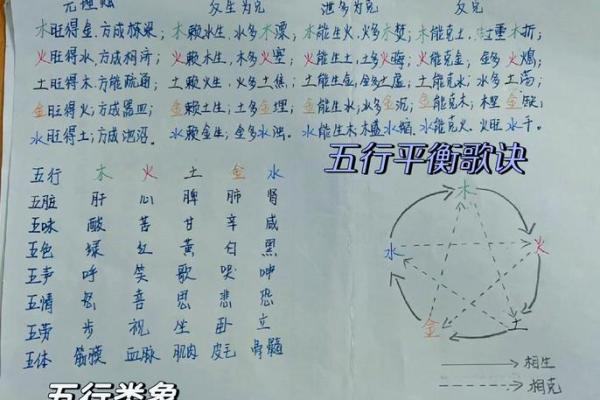 反生为克 泄多为克 反克
木旺得金,方成栋梁; 木赖水生,水多木漂; 木能生火,火多木焚; 木能克土,土重木折;
火旺得水,方成相济; 火赖木生,木多火塞; 火能生土,土多火晦; 火能克金,金多火熄;
土旺得木,方能疏通; 土赖火生,火多土焦; 土能生金,金多土虚; 土能克水,水多土荡;
金旺得火;方成器皿; 金赖土生;土多金埋; 金能生水;水多金沉; 金能克木;木坚金缺;
水旺得土;方成池沼。 水赖金生;金多水浊。 水能生木木盛水缩。水能克火,火旺水干。
五行平衡歌诀
五行 木 火 土 金 水
五脏 肝 心 脾 肺 肾
五味 酸 苦 甘 辛 咸
五色 绿 红 黄 白 黑
五声 呼 笑 歌 哭 呻
五情 怒 喜 思 悲 恐
五劳 步 视 坐 卧 立
五体 筋膜 血脉 肌肉 皮毛 骨髓
木
水 火
金 土
相生
相克
五行类象